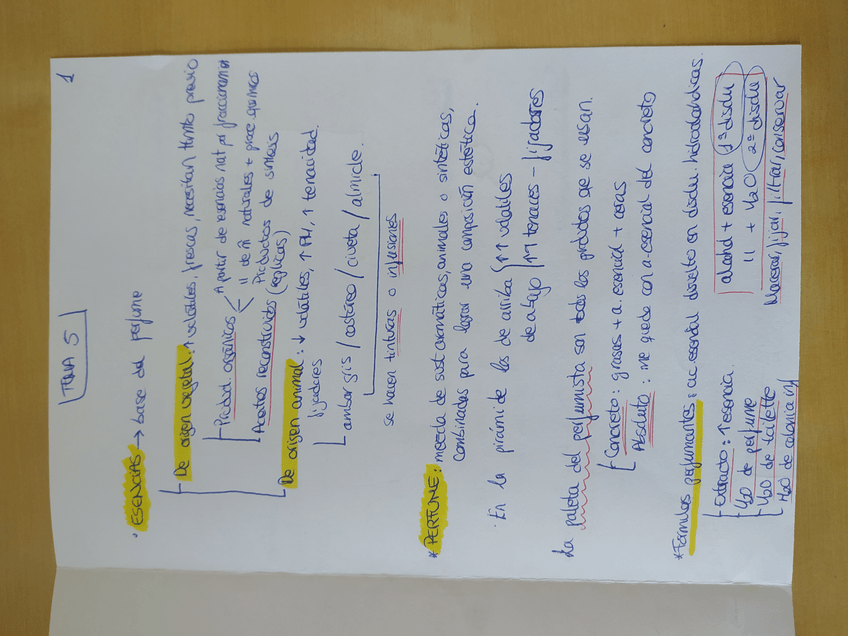 1
TEMA 5
· ESENCIAS → base del perfume
De origen vegetal: ↑ volátiles, frescas, necesitan tanto previo
Product. orgánicos < A partir de esencias nat por fraccionamiento
" de m naturales + proc químicos
Productos de síntesis
Aromas reconstruidos (réplicas)
De origen animal: ↓ volátiles, ↑ PM, ↑ tenacidad.
fijadores
ambar gris / castóreo / civeta / almizcle.
se hacen tinturas o infusiones
* PERFUME: mezcla de sust aromáticas, animales o sintéticas,
combinadas para lograr una composición estética.
· En la pirámide los de arriba ↑↑ volátiles
de abajo ↑↑ tenaces - fijadores
La paleta del perfumista son todos los productos que se usan.
Concreto: grasas + a. esencial + ceras
Absoluto: me quedo con a. esencial del concreto
* Fórmulas perfumantes: ac esencial disuelto en disolu. hidroalcohólicas.
Extracto: ↑ esencia.
H2O de perfume
H2O de toilette
H2O de colonia
alcohol + esencia 1ª disolu
" + H2O 2ª disolu
Macerar, fijar, filtrar, conservar